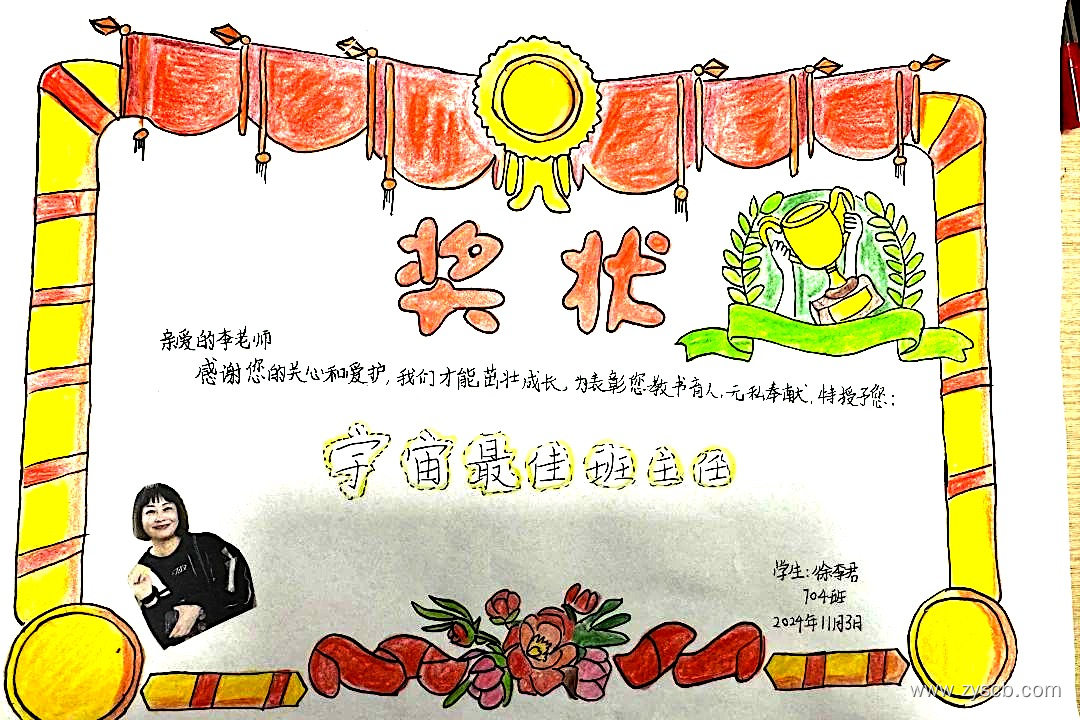 奖状
亲爱的李老师
感谢您的关心和爱护,我们才能茁壮成长。为表彰您教书育人,无私奉献,特授予您:
宇宙最佳班主任
学生:徐李君
704班
2024年11月3日
www.zyscb.com